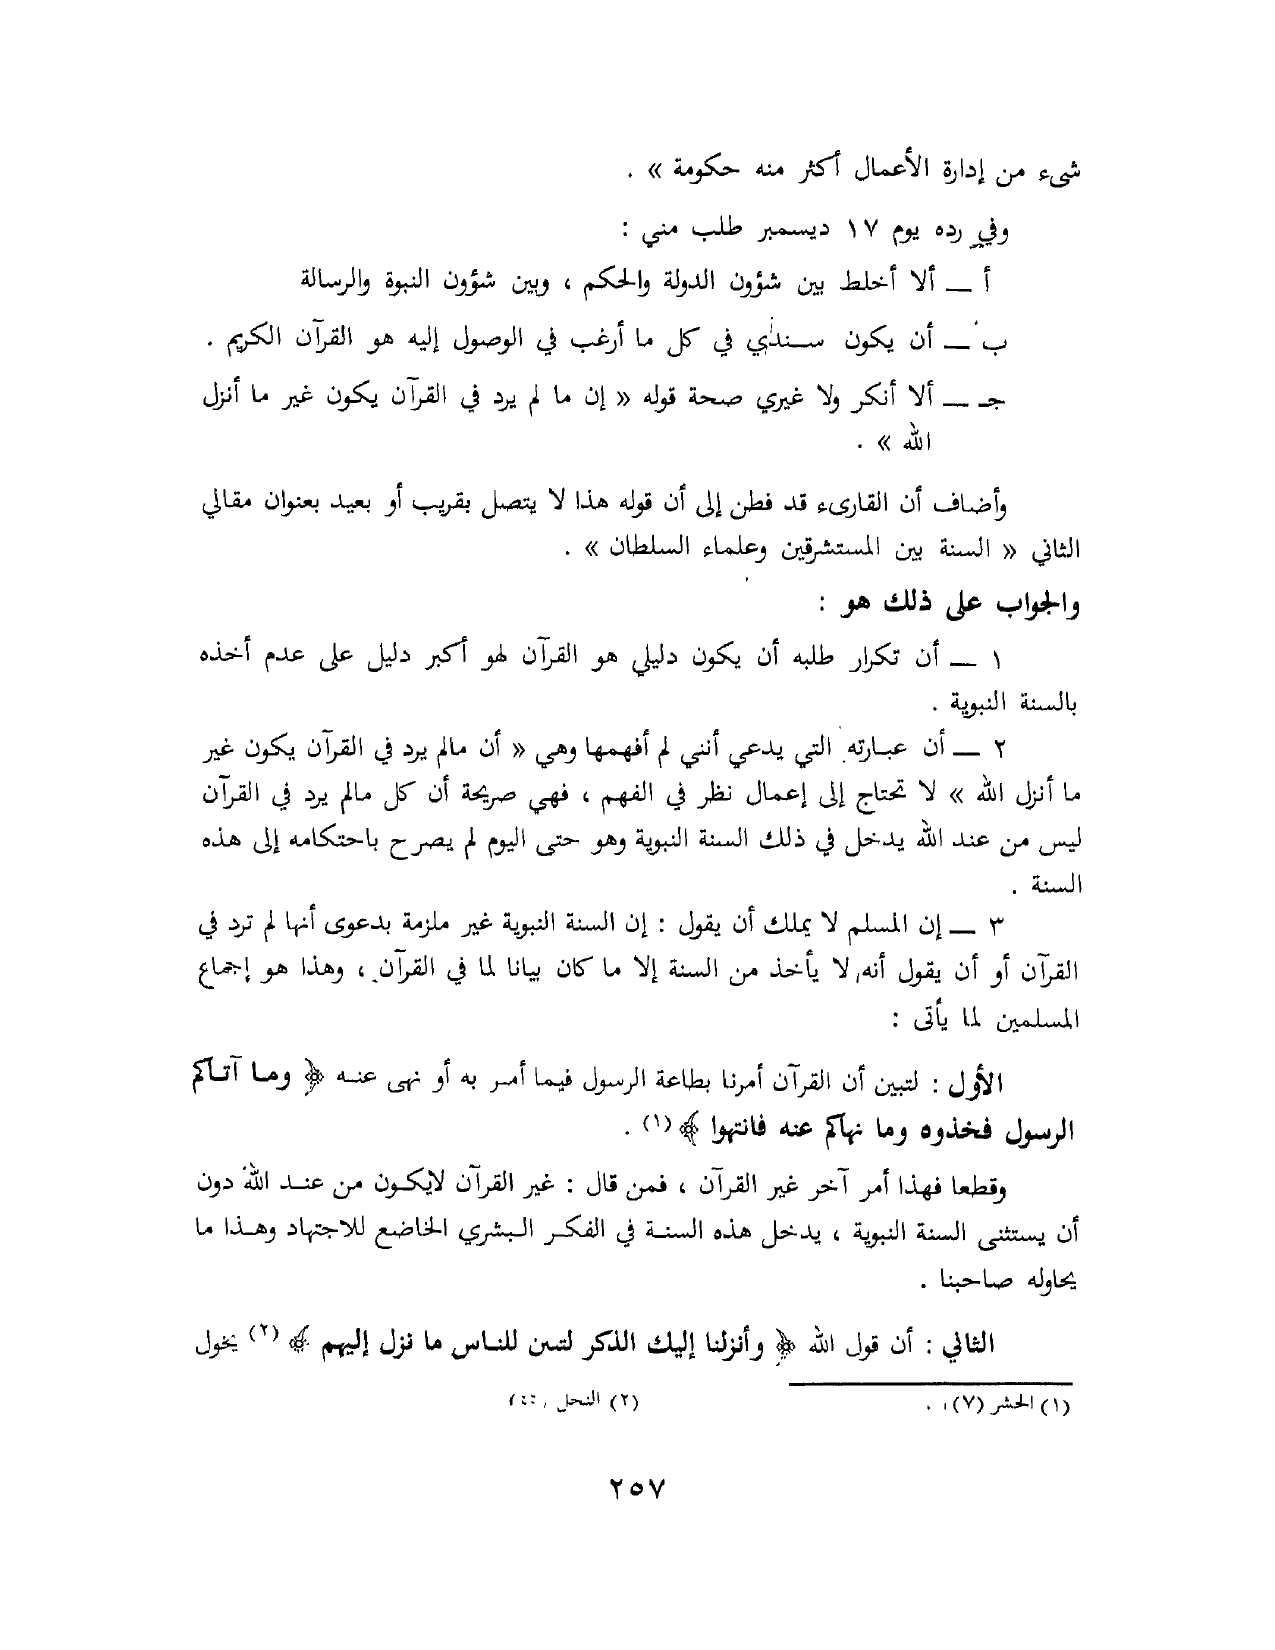 شىء من إدارة الأعمال أكثر منه حكومة » .
وفي رده يوم ١٧ ديسمبر طلب مني :
أ ــ ألا أخلط بين شؤون الدولة والحكم ، وبين شؤون النبوة والرسالة
ب ــ أن يكون سندي في كل ما أرغب في الوصول إليه هو القرآن الكريم .
جـ ــ ألا أنكر ولا غيري صحة قوله « إن ما لم يرد في القرآن يكون غير ما أنزل
الله » .
وأضاف أن القارىء قد فطن إلى أن قوله هذا لا يتصل بقريب أو بعيد بعنوان مقالي
الثاني « السنة بين المستشرقين وعلماء السلطان » .
والجواب على ذلك هو :
١ ــ أن تكرار طلبه أن يكون دليلي هو القرآن لهو أكبر دليل على عدم أخذه
بالسنة النبوية .
٢ ــ أن عبارته التي يدعي أنني لم أفهمها وهي « أن مالم يرد في القرآن يكون غير
ما أنزل الله » لا تحتاج إلى إعمال نظر في الفهم ، فهي صريحة أن كل مالم يرد في القرآن
ليس من عند الله يدخل في ذلك السنة النبوية وهو حتى اليوم لم يصرح باحتكامه إلى هذه
السنة .
٣ ــ إن المسلم لا يملك أن يقول : إن السنة النبوية غير ملزمة بدعوى أنها لم ترد في
القرآن أو أن يقول أنه لا يأخذ من السنة إلا ما كان بيانا لما في القرآن ، وهذا هو إجماع
المسلمين لما يأتى :
الأول : لتبين أن القرآن أمرنا بطاعة الرسول فيما أمر به أو نهى عنه ﴿ وما آتاكم
الرسول فخذوه وما نهاكم عنه فانتهوا ﴾ (١) .
وقطعا فهذا أمر آخر غير القرآن ، فمن قال : غير القرآن لايكون من عند الله دون
أن يستثنى السنة النبوية ، يدخل هذه السنة في الفكر البشري الخاضع للاجتهاد وهذا ما
يحاوله صاحبنا .
الثاني : أن قول الله ﴿ وأنزلنا إليك الذكر لتبين للناس ما نزل إليهم ﴾ (٢) يخول
(١) الحشر (٧) .
(٢) النحل
٢٥٧